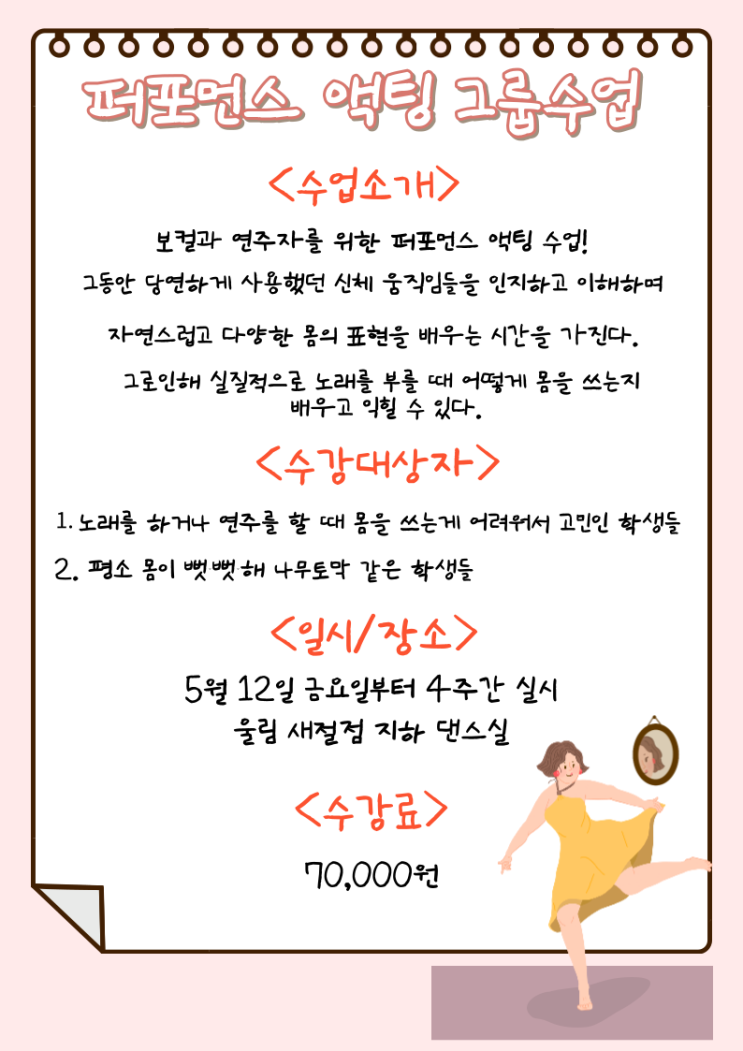 퍼포먼스 액팅 그룹수업
<수업소개>
보컬과 연주자를 위한 퍼포먼스 액팅 수업!
그동안 당연하게 사용했던 신체 움직임들을 인지하고 이해하며
자연스럽고 다양한 몸의 표현을 배우는 시간을 가진다.
그로인해 실질적으로 노래를 부를 때 어떻게 몸을 쓰는지
배우고 익힐 수 있다.
<수강대상자>
1. 노래를 하거나 연주를 할 때 몸을 쓰는게 어려워서 고민인 학생들
2. 평소 몸이 뻣뻣해 나무토막 같은 학생들
<일시/장소>
5월 12일 금요일부터 4주간 실시
울림 새절점 지하 댄스실
<수강료>
70,000원